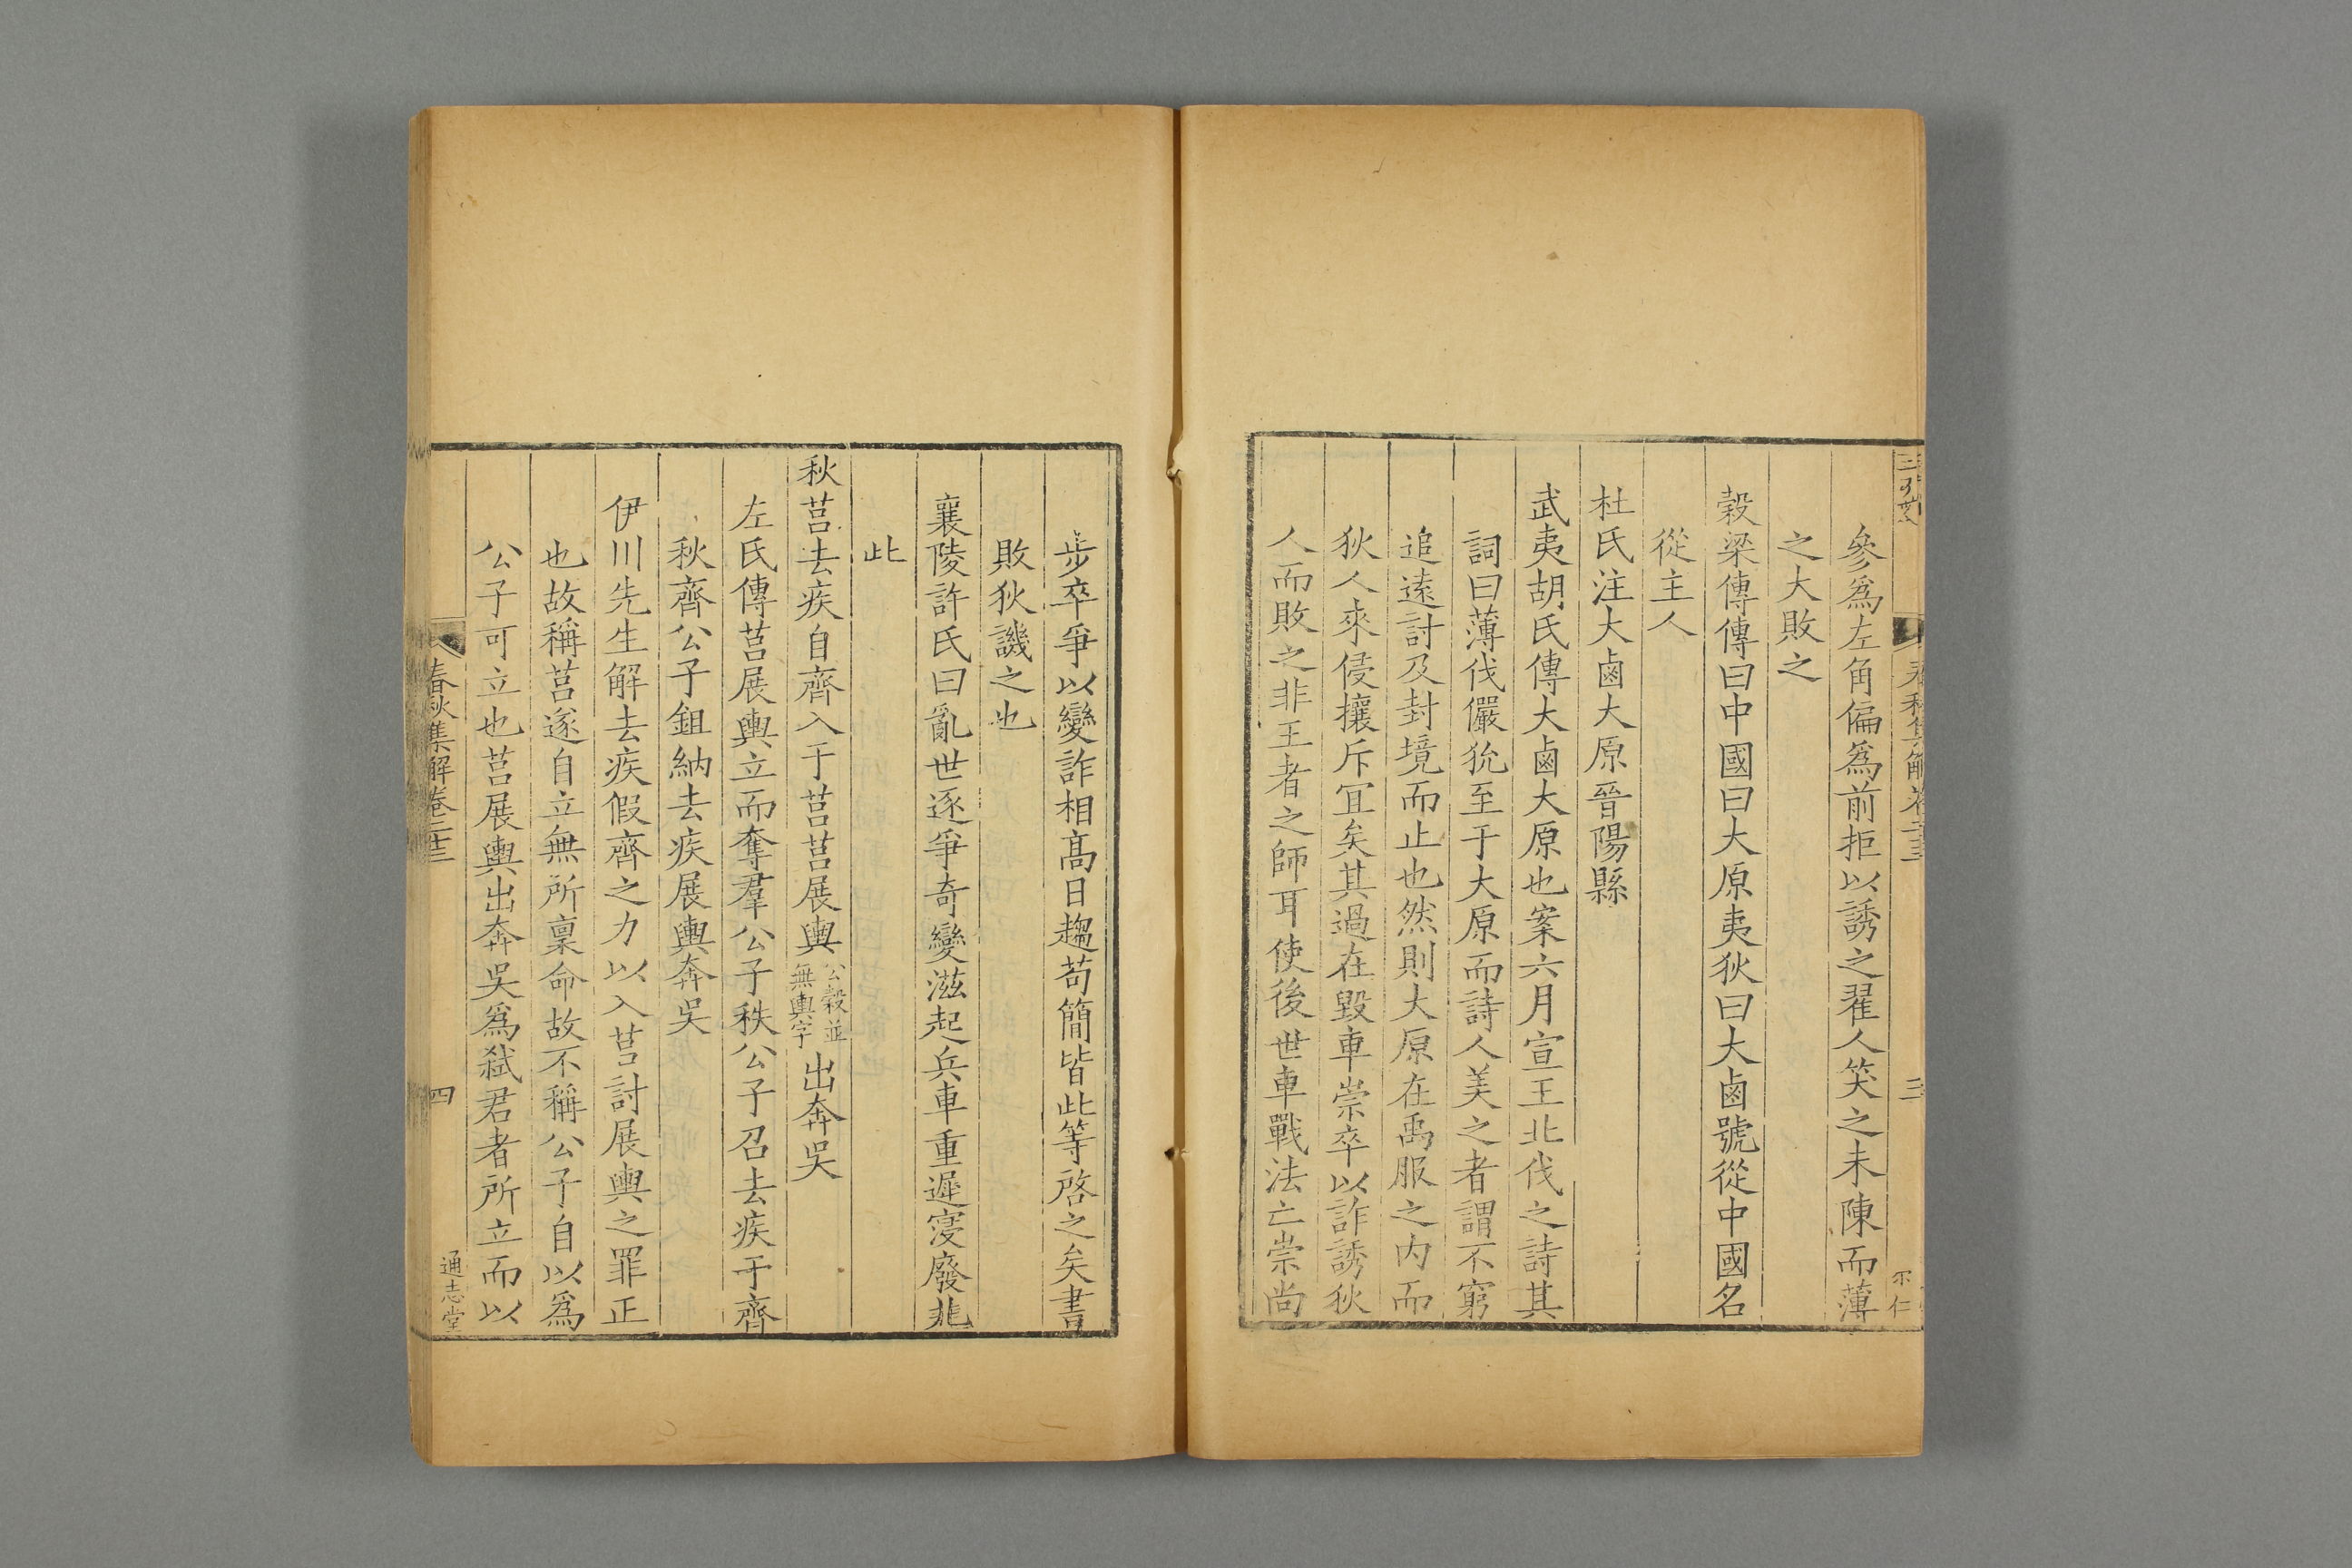 參爲左角偏爲前拒以誘之翟人笑之未陳而薄
之大敗之
穀梁傳傳曰中國曰大原夷狄曰大鹵號從中國名
從主人
杜氏注大鹵大原晉陽縣
武夷胡氏傳大鹵大原也案六月宣王北伐之詩其
詞曰薄伐玁狁至于大原而詩人美之者謂不窮
追遠討及封境而止也然則大原在禹服之内而
狄人來侵攘斥宜矣其過在毀車崇卒以詐誘狄
人而敗之非王者之師耳使後世車戰法亡崇尚
步卒爭以變詐相高日趨苟簡皆此等啓之矣書
敗狄譏之也
襄陵許氏曰亂世逐爭奇變滋起兵車重遲寖廢兆
此
秋莒去疾自齊入于莒莒展輿公穀並無輿字出奔吳
左氏傳莒展輿立而奪羣公子秩公子召去疾于齊
秋齊公子鉏納去疾展輿奔吳
伊川先生解去疾假齊之力以入莒討展輿之罪正
也故稱莒遂自立無所稟命故不稱公子自以爲
公子可立也莒展輿出奔吳爲弒君者所立而以
春秋集解卷二十三
四
通志堂